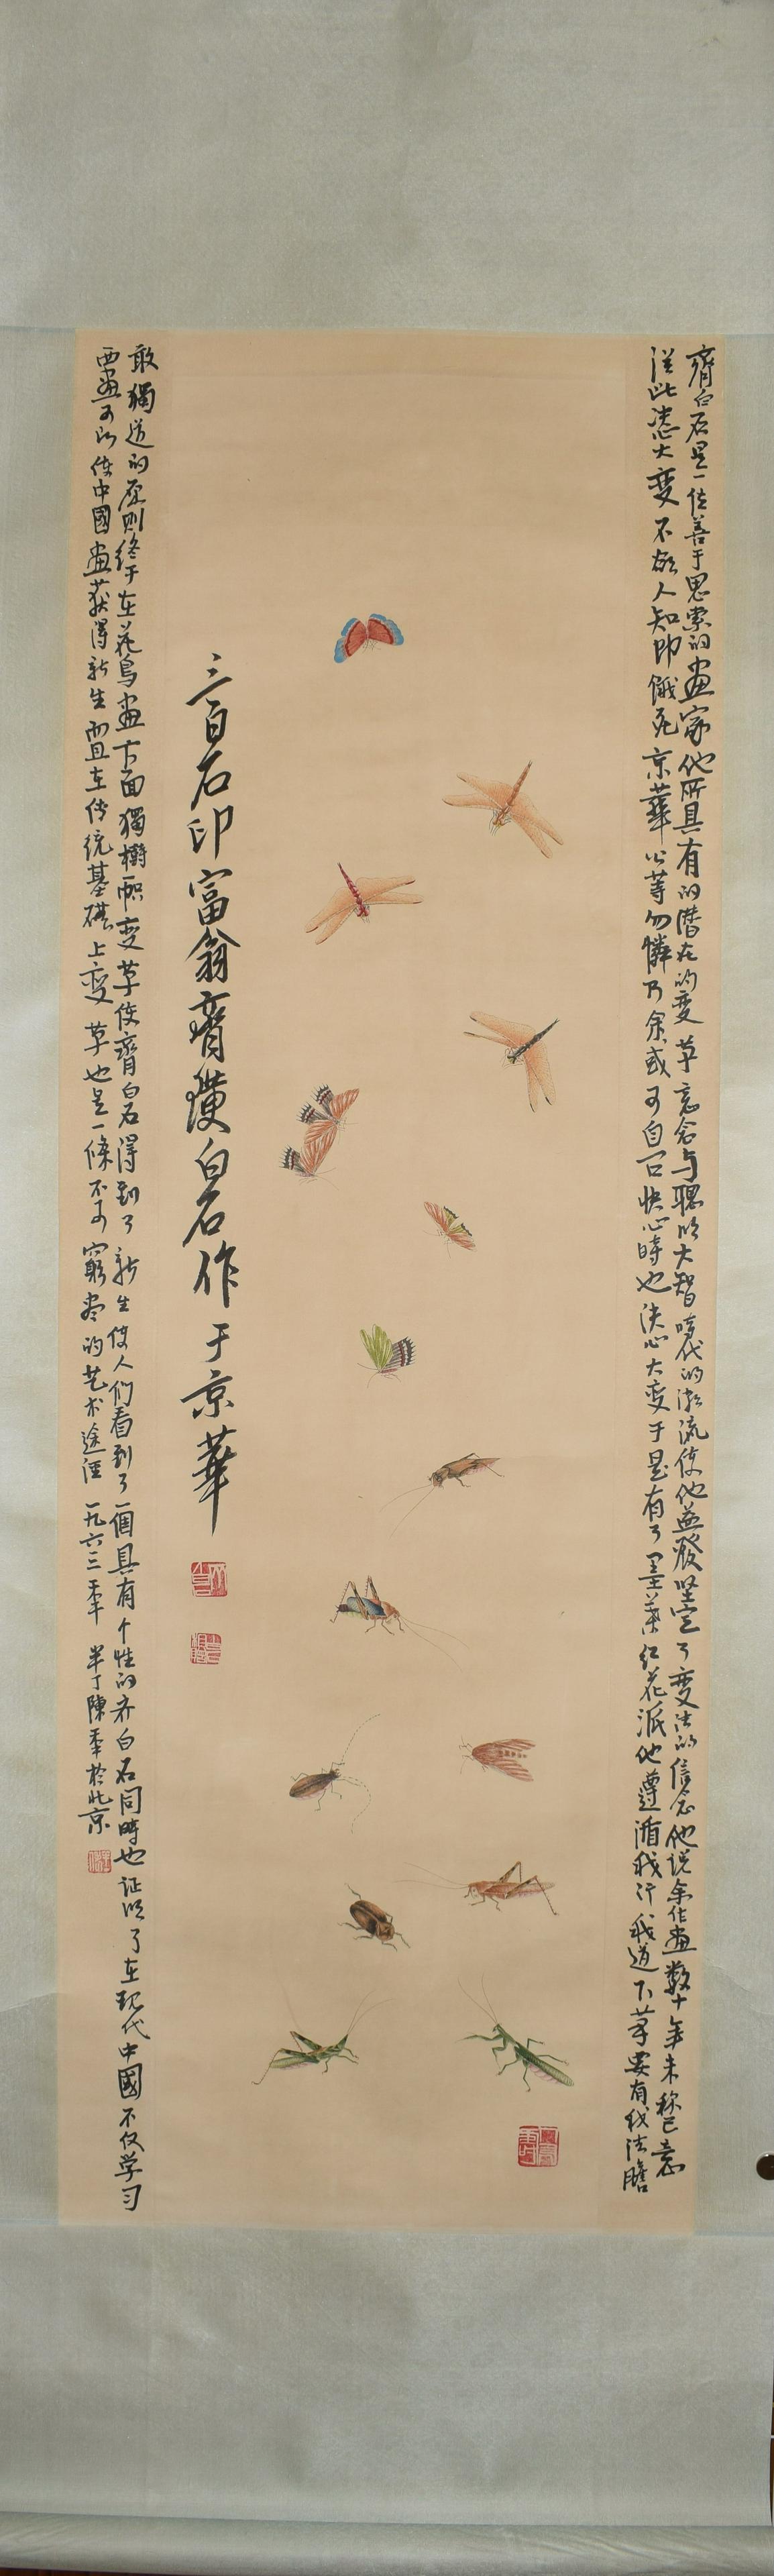 齊白石是一位善于思索的画家他所具有的潜在的变革意念与聪明大智時代的激流使他益發坚定了变法的信念他说余作画數十年未称己意
從此决心大变不欲人知即餓死京華公等勿憐乃余或可自问快心時也决心大变于是有了墨葉红花派他遵循我行我道下笔要有我法膽
三百石印富翁齊璜白石作于京華
敢獨造的原则终于在花鳥画方面獨樹一帜变革使齊白石得到了新生使人们看到了一個具有个性的齐白石同時也证明了在现代中國不仅学习
西画可以使中國画获得新生而且在传统基礎上变革也是一條不可窮尽的艺术途径一九六三年半丁陳年於北京